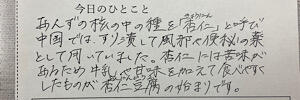 今日のひとこと
あんずの核の中の種を「杏仁」と呼び
きょうにん
中国では、すり潰して風邪や便秘の薬
として用いていました。杏仁には苦味が
あるため牛乳や甘味を加えて食べやすく
したものが杏仁豆腐の始まりです。